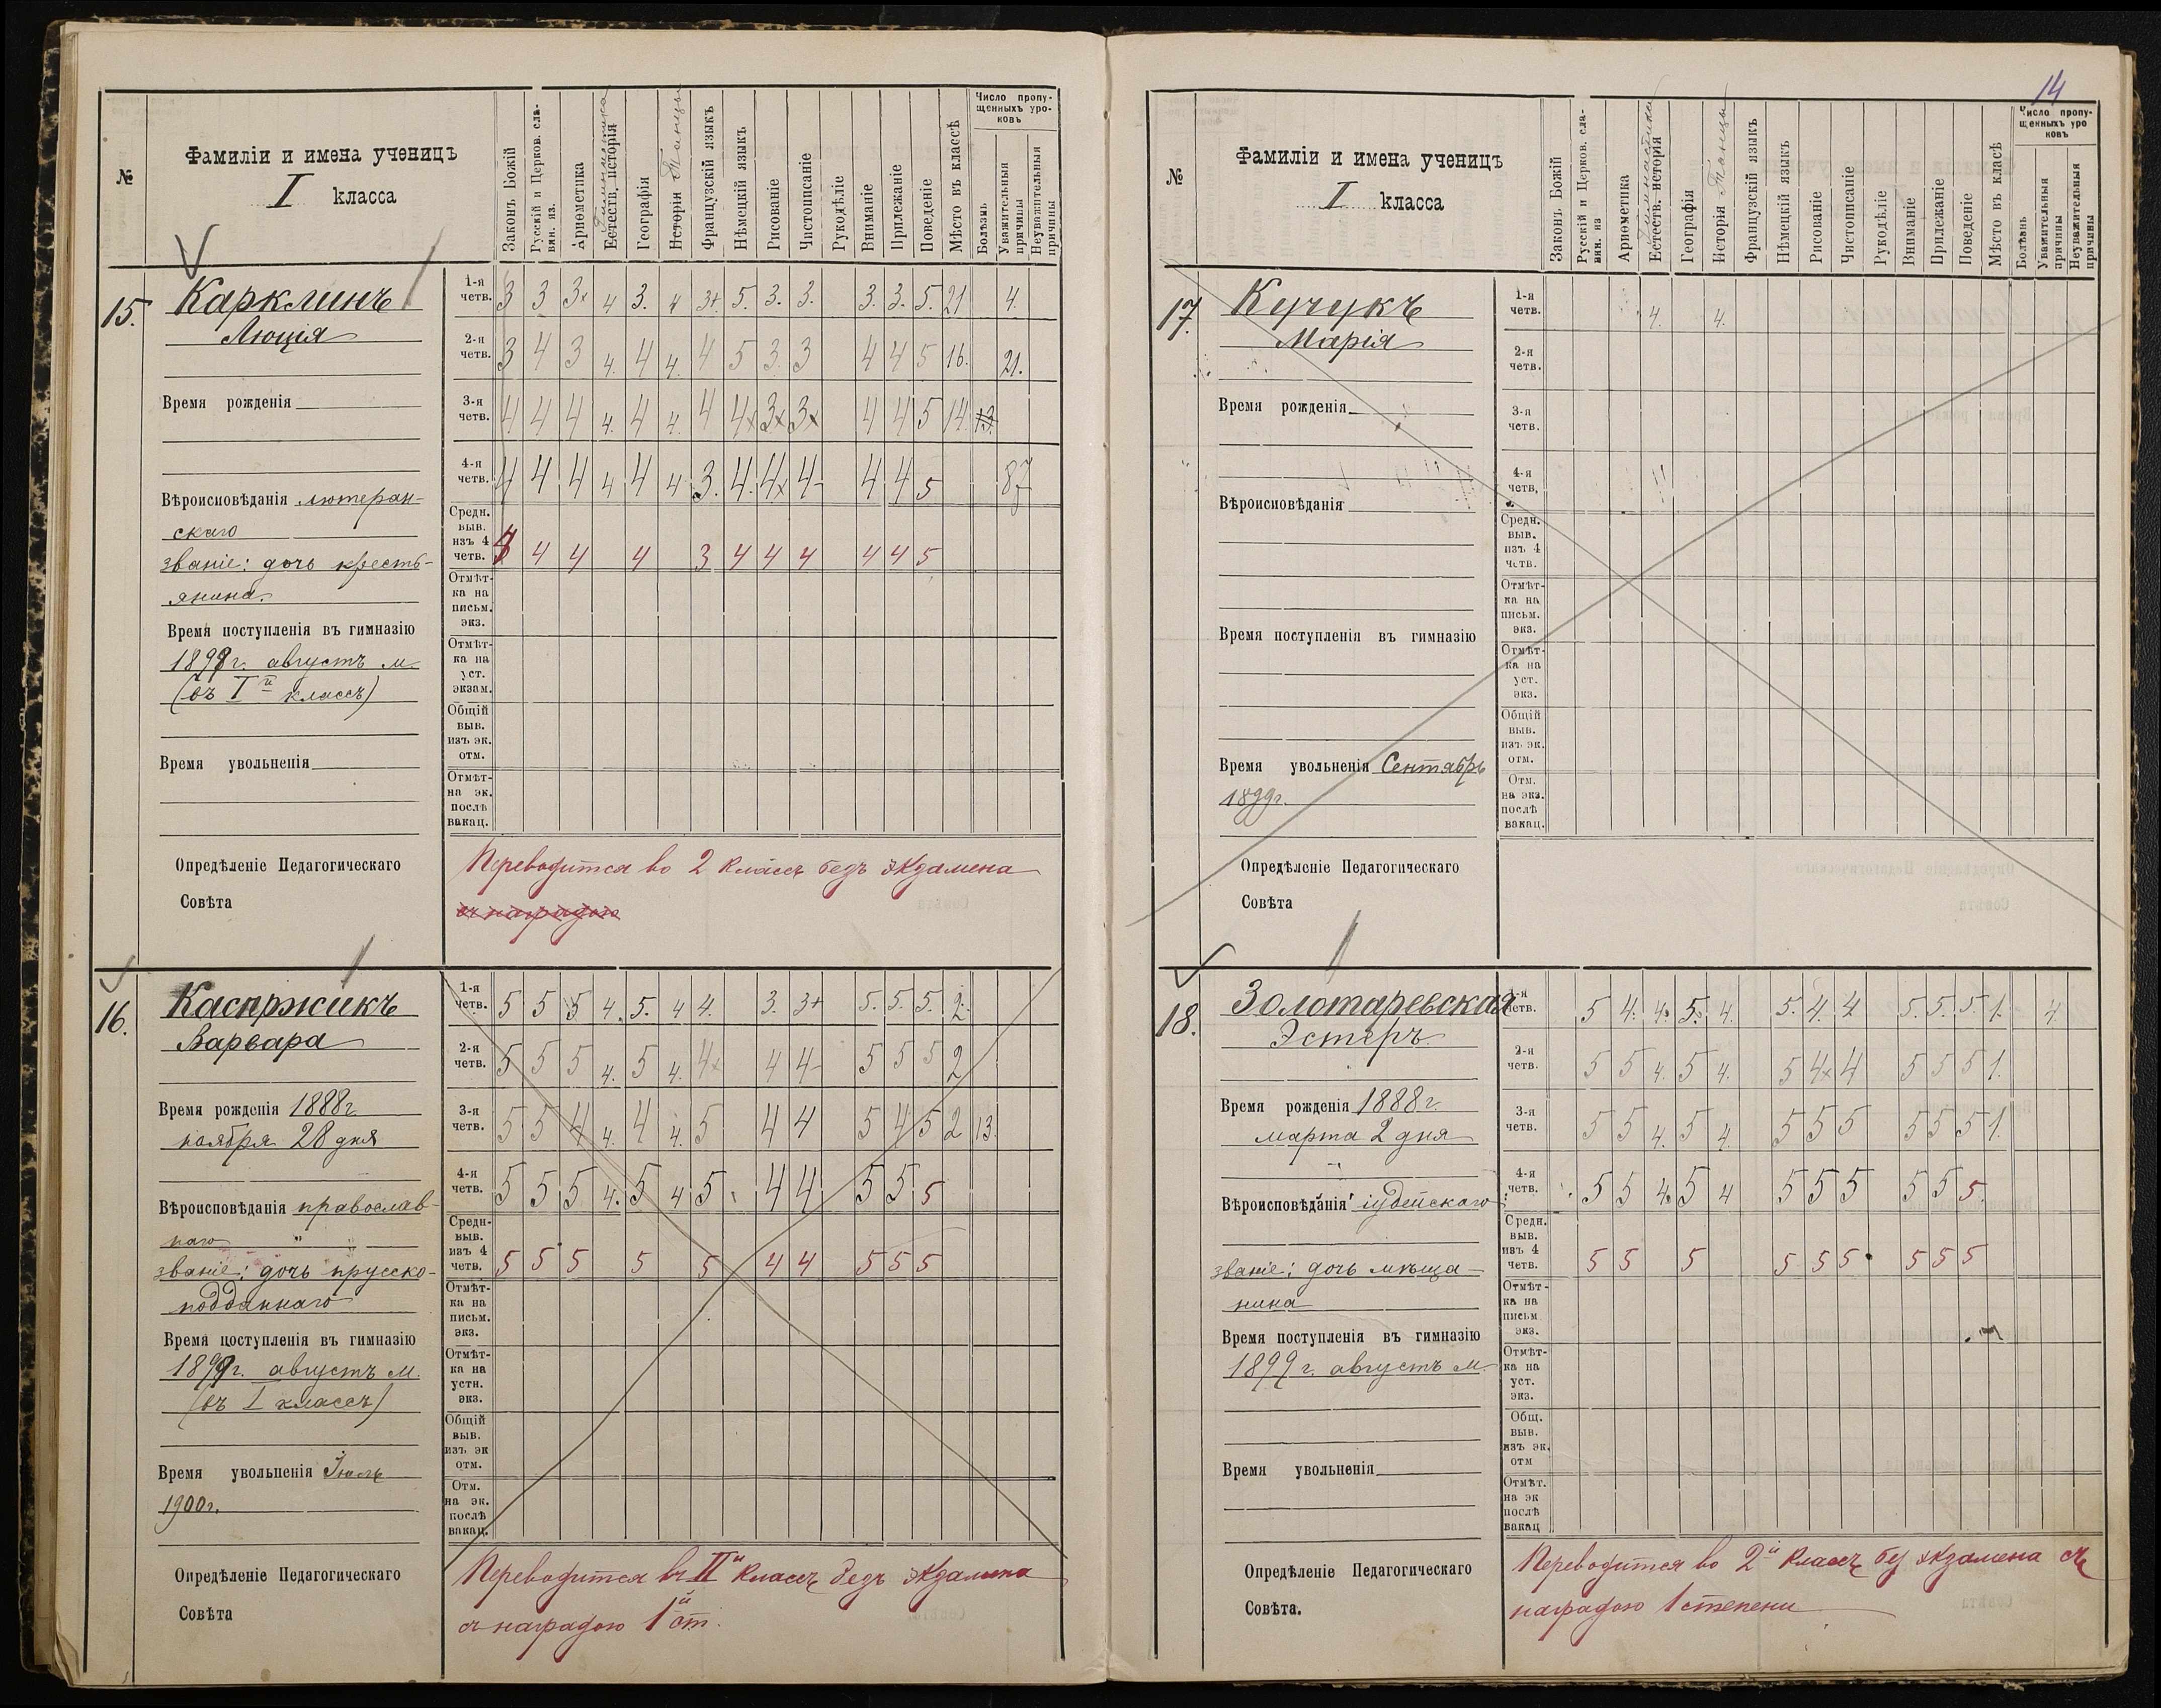 №
Фамиліи и имена ученицъ
I класса
Законъ Божій
Русскій и Церков. сла-
вян. яз.
Ариѳметика
Гимнастика
Естеств. исторія
Географія
Исторія Танцы
Французскій языкъ
Нѣмецкій языкъ
Рисованіе
Чистописаніе
Рукодѣліе
Вниманіе
Прилежаніе
Поведеніе
Мѣсто въ классѣ
Число пропу-
щенныхъ уро-
ковъ
Болѣзнь
Уважительныя
причины
Неуважительныя
причины
15.
Карклинъ
Люція
Время рожденія
Вѣроисповѣданія лютеран-
скаго
званіе: дочь кресть-
янина.
Время поступленія въ гимназію
1899г. августъ м.
(въ I й классъ)
Время увольненія
1-я четв. 3 3 3× 4 3. 4 3+ 5. 3. 3. 3. 3. 5. 21 4.
2-я четв. 3 4 3 4. 4 4. 4 5 3. 3 4 4 5 16. 21.
3-я четв. 4 4 4 4. 4 4. 4 4× 3× 3× 4 4 5 14. 13.
4-я четв. 4 4 4 4 4 4 3. 4. 4× 4- 4 4 5 87
Средн. выв. изъ 4 четв. 4 4 4 4 3 4 4 4 4 4 5
Отмѣт-
ка на
письм.
экз.
Отмѣт-
ка на
уст.
экзам.
Общій
выв.
изъ эк.
отм.
Отмѣт-
на эк.
послѣ
вакац.
Опредѣленіе Педагогическаго
Совѣта
Переводится во 2 классъ безъ экзамена
съ наградою
16.
Каспржикъ
Варвара
Время рожденія 1888г.
ноября 28 дня
Вѣроисповѣданія православ-
наго
званіе: дочь прусско-
подданнаго
Время поступленія въ гимназію
1899г. августъ м.
(въ I классъ)
Время увольненія Іюль
1900г.
1-я четв. 5 5 5 4. 5. 4 4. 3. 3+ 5. 5. 5. 2.
2-я четв. 5 5 5 4. 5 4. 4× 4 4- 5 5 5 2
3-я четв. 5 5 4 4. 4 4. 5 4 4 5 4 5 2 13.
4-я четв. 5 5 5 4. 5 4 5 4 4 5 5 5
Средн- выв. изъ 4 четв. 5 5 5 5 5 4 4 5 5 5
Отмѣт-
ка на
письм.
экз.
Отмѣт-
ка на
устн.
экз.
Общій
выв.
изъ эк
отм.
Отм.
на эк.
послѣ
вакац.
Опредѣленіе Педагогическаго
Совѣта
Переводится въ II й классъ безъ экзамена
съ наградою 1 й ст.
14
№
Фамиліи и имена ученицъ
I класса
Законъ Божій
Русскій и Церков. сла-
вян. яз
Ариѳметика
Гимнастика
Естеств. исторія
Географія
Исторія Танцы
Французскій языкъ
Нѣмецкій языкъ
Рисованіе
Чистописаніе
Рукодѣліе
Вниманіе
Прилежаніе
Поведеніе
Мѣсто въ класѣ
Число пропу-
щенныхъ уро
ковъ
Болѣзнь
Уважительныя
причины
Неуважительныя
причины
17.
Кучукъ
Марія
Время рожденія
Вѣроисповѣданія
Время поступленія въ гимназію
Время увольненія Сентябрь
1899г.
1-я четв. 4. 4.
2-я четв.
3-я четв.
4-я четв,
Средн.
выв.
изъ 4
четв.
Отмѣт-
ка на
письм.
экз.
Отмѣт-
ка на
уст.
экз.
Общій
выв.
изъ эк.
отм.
Отм.
на экз.
послѣ
вакац.
Опредѣленіе Педагогическаго
Совѣта
18.
Золотаревская
Эстеръ
Время рожденія 1888г.
марта 2 дня
Вѣроисповѣданія іудейскаго
званіе: дочь мѣща-
нина
Время поступленія въ гимназію
1899 г. августъ м.
Время увольненія
1-я четв. 5 4. 4. 5. 4. 5. 4. 4 5. 5. 5. 1. 4.
2-я четв. 5 5 4. 5 4. 5 4× 4 5 5 5 1.
3-я четв. 5 5 4. 5 4. 5 5 5 5 5 5 1.
4-я четв. 5 5 4. 5 4 5 5 5 5 5 5.
Средн. выв. изъ 4 четв. 5 5 5 5 5 5 5 5 5
Отмѣт-
ка на
письм
экз.
Отмѣт-
ка на
уст.
экз.
Общ.
выв.
изъ эк.
отм
Отмѣт.
на эк
послѣ
вакац
Опредѣленіе Педагогическаго
Совѣта.
Переводится во 2 й классъ без экзамена съ
наградою 1 степени